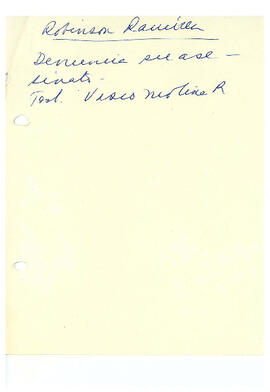 Robinson Ramírez
Denuncia su ase-
sinato.
Test. Visco Molina R